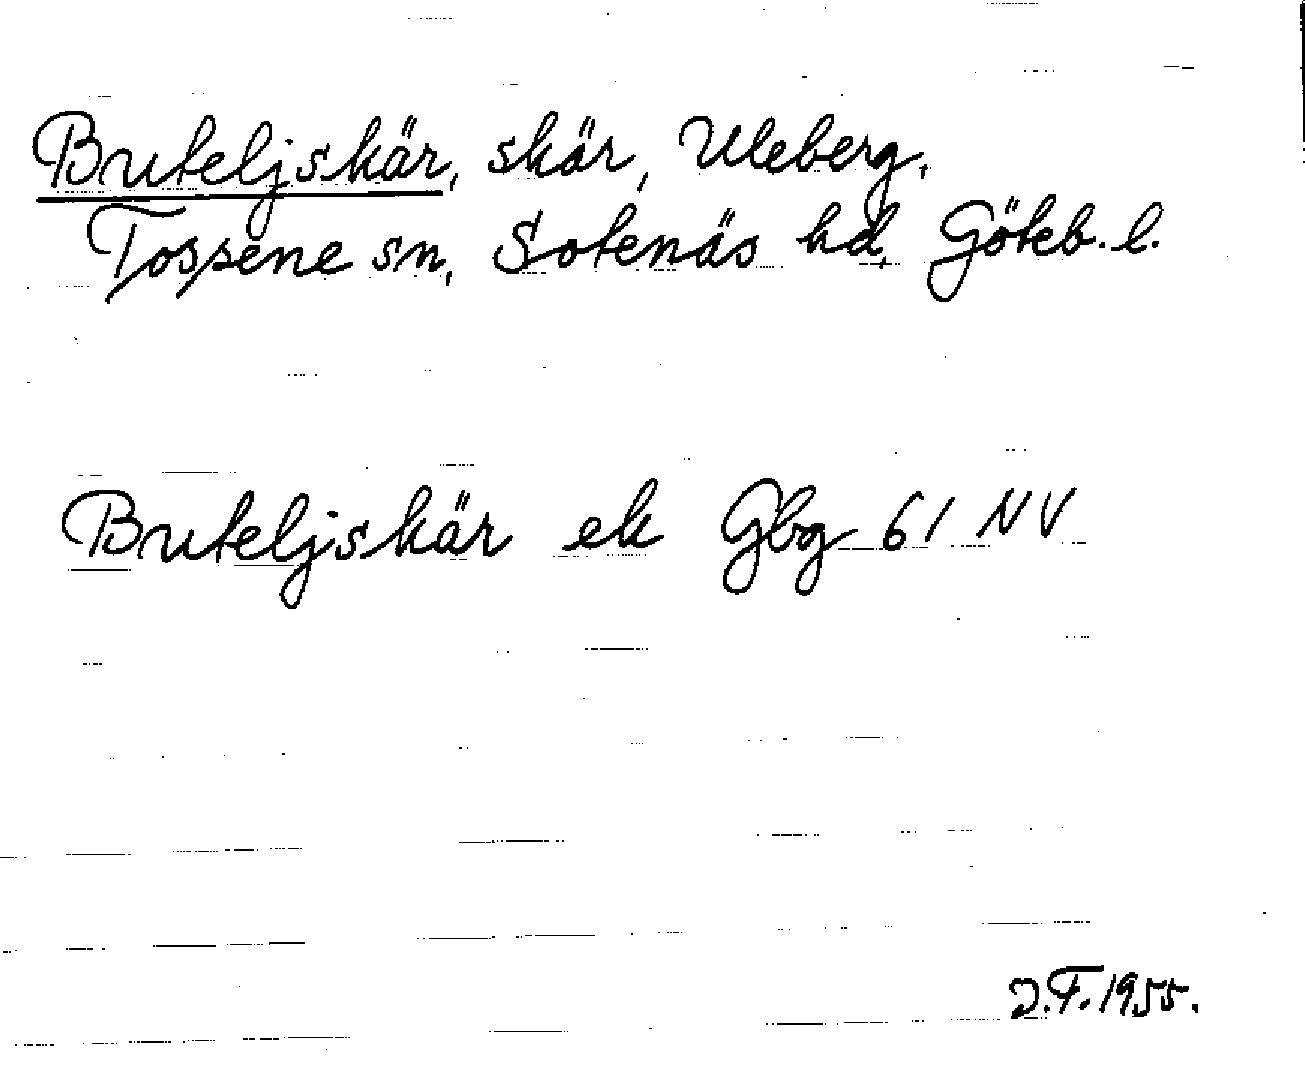 Buteljskär, skär, Uleberg,
Tossene sn, Sotenäs hd, Göteb. l.
Buteljskär ek Gbg 61 NV
J.F. 1955.